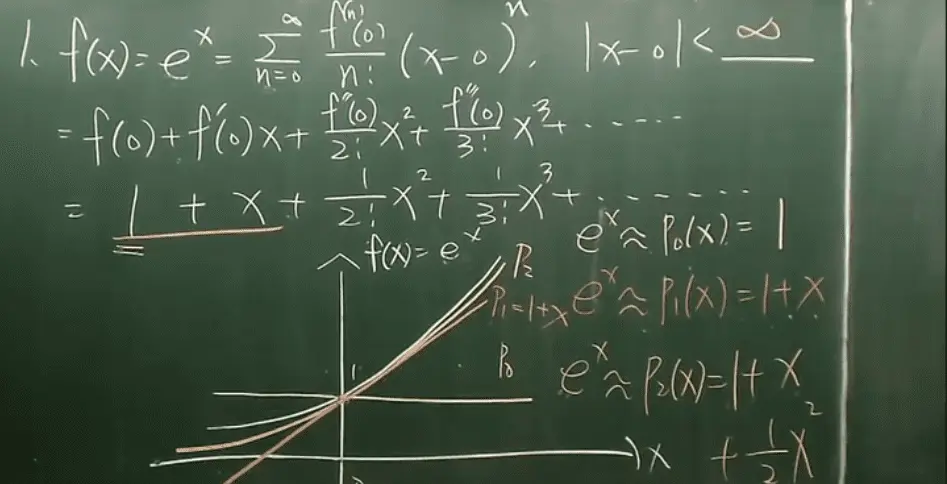 1. f(x)=e^x = ∑_{n=0}^{∞} f^{(n)}(0)/n! (x-0)^n, |x-0|< ∞
= f(0)+f'(0)x+ f''(0)/2! x^2+ f'''(0)/3! x^3+ ······
= 1 + x + 1/2! x^2+ 1/3! x^3+ ·······
f(x)=e^x
e^x ≈ P_0(x) = 1
P_2
P_1=1+x
e^x ≈ P_1(x)=1+x
1
P_0
e^x ≈ P_2(x)=1+x
+ 1/2 x^2
x